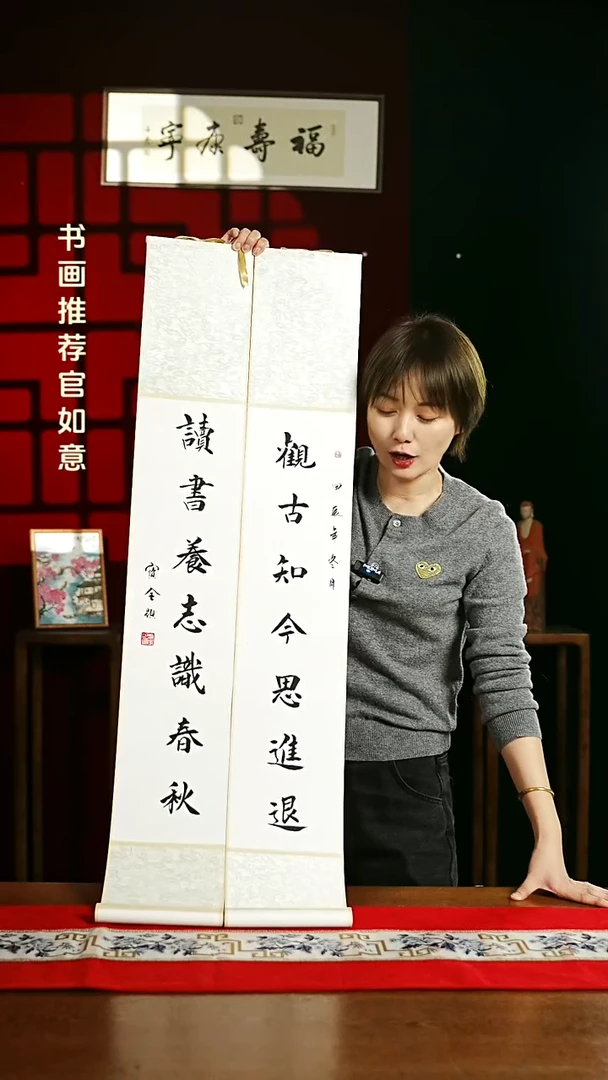 福壽康寧
书画推荐官如意
觀古知今思進退
讀書養志識春秋
冬月